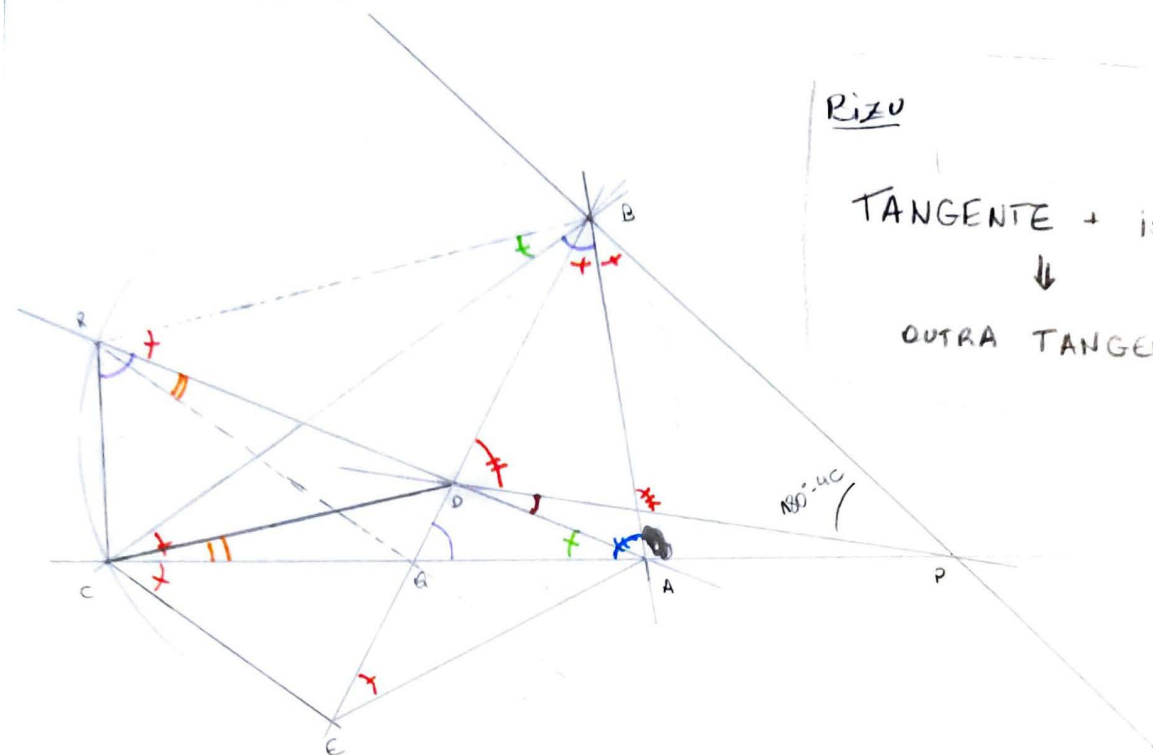 Rizu
TANGENTE +
⇓
OUTRA
B
R
D
180°-4C
C
A
P
E